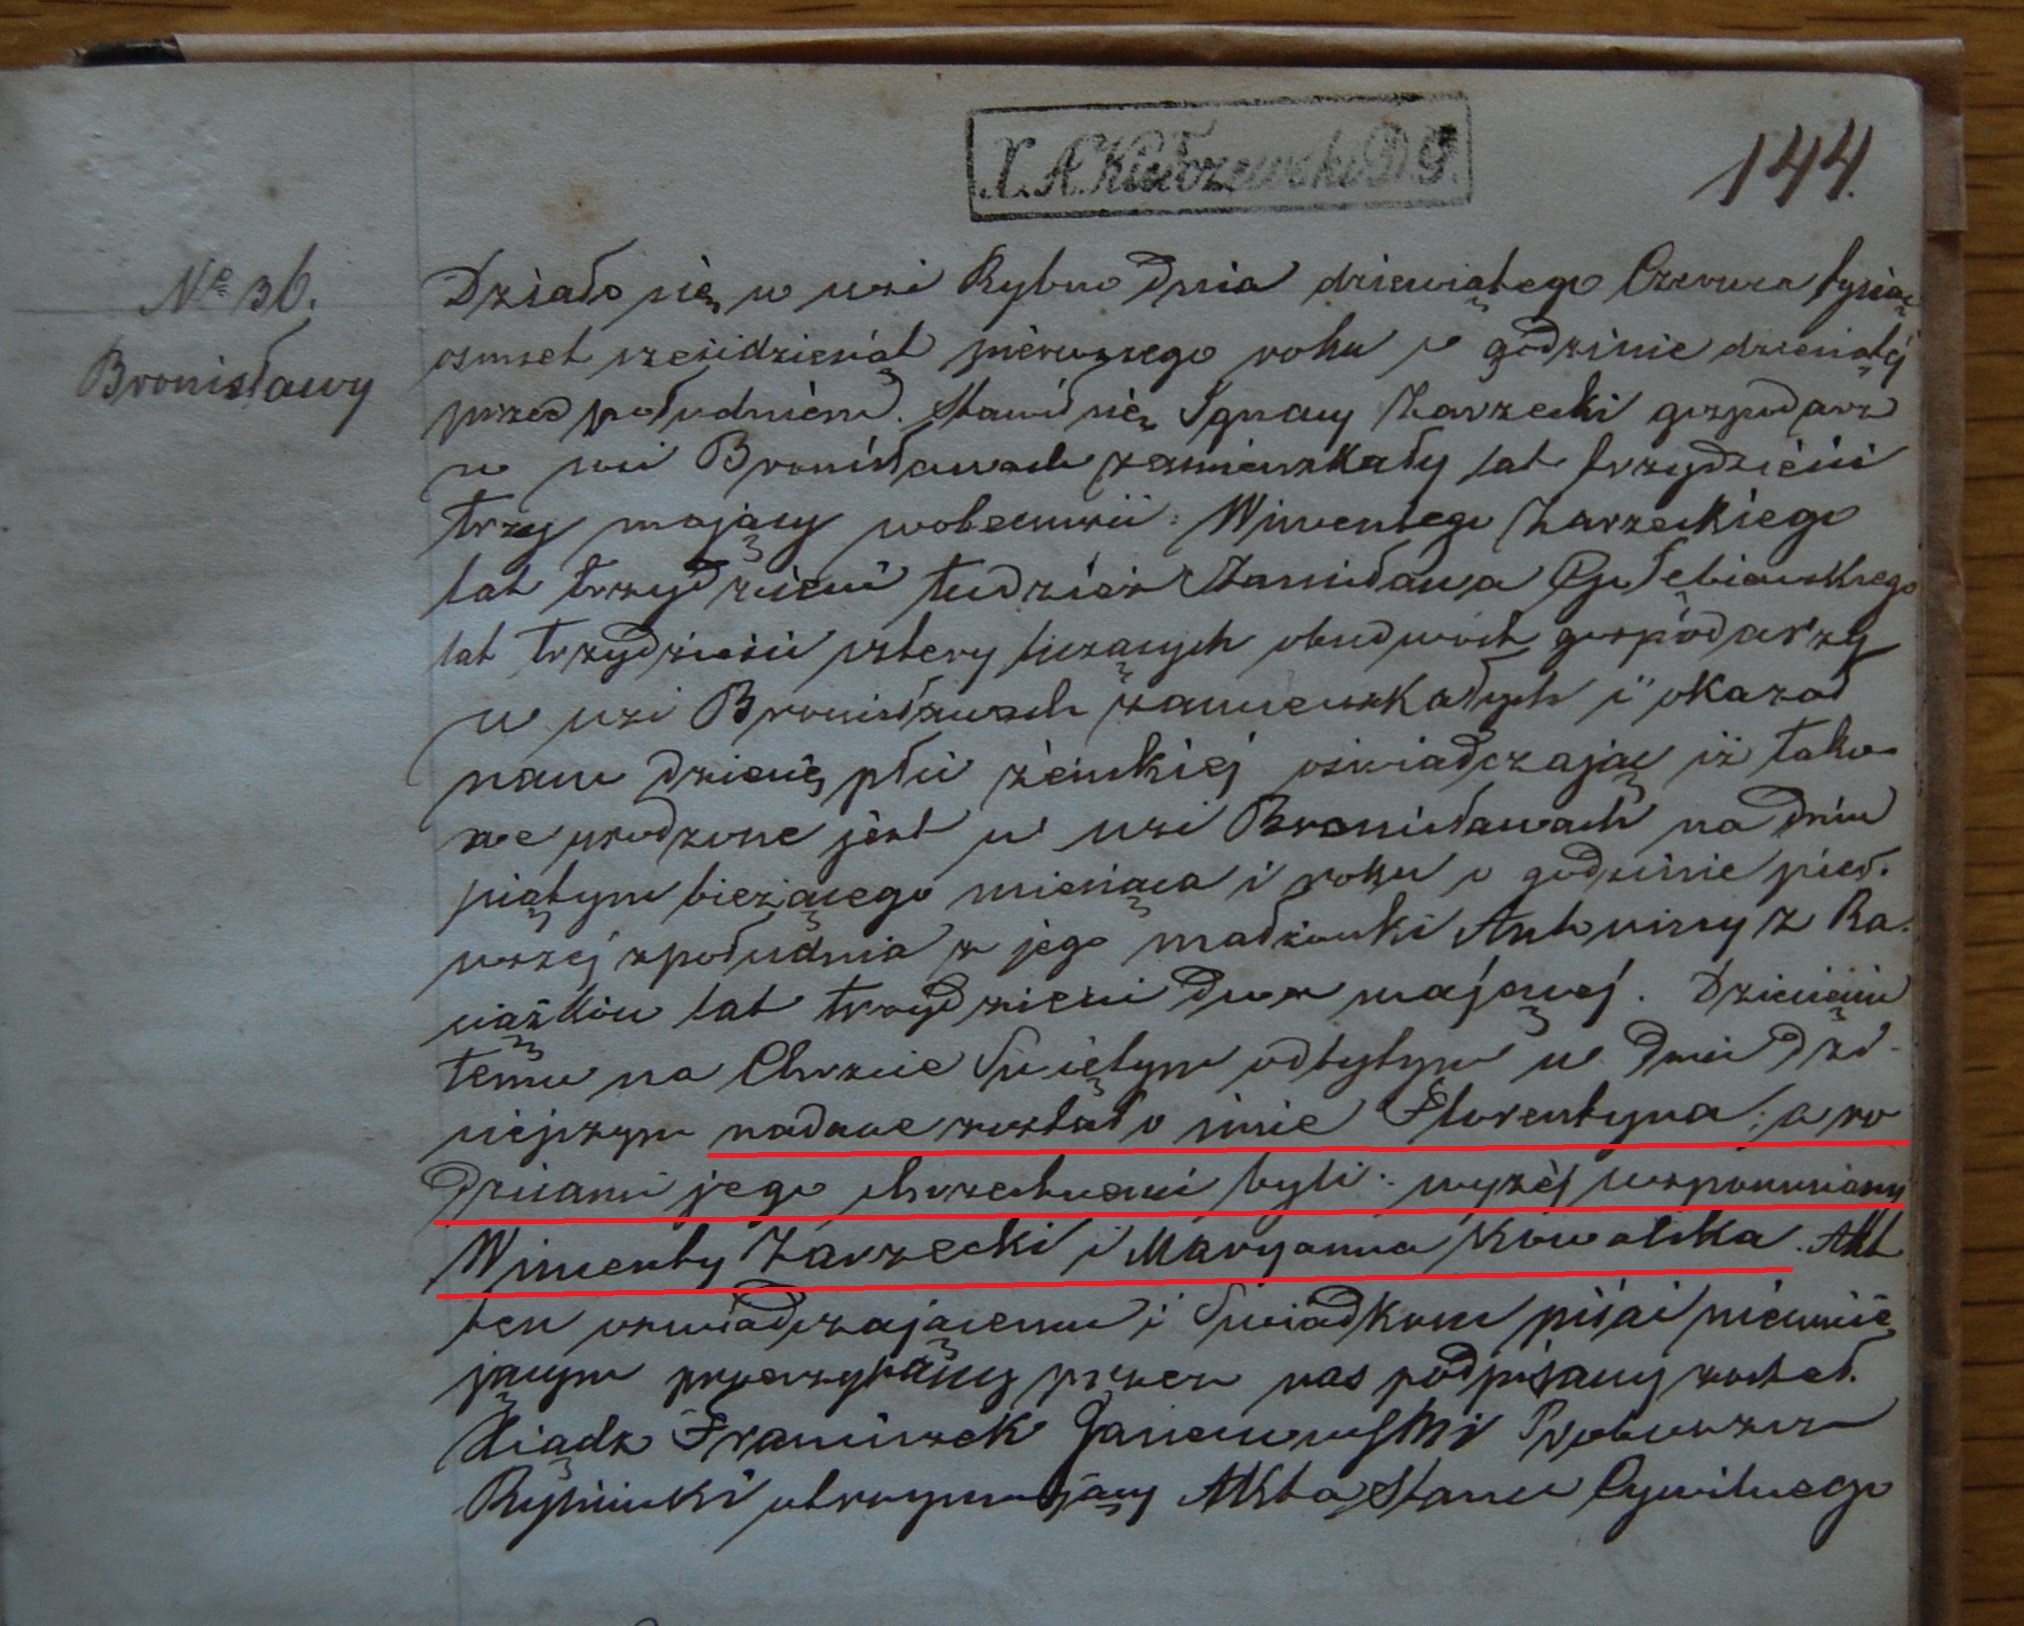 X. A. Kiełczewski D. G.
144.
Nº 36.
Bronisławy
Działo się w wsi Rybno dnia dziewiątego Czerwca tysiąc
osmset sześćdziesiąt pierwszego roku o godzinie dziesiątéj
przed południem. Stawił się Ignacy Zarzecki gospodarz
w wsi Bronisławach zamieszkały lat trzydzieści
trzy mający w obecności: Wincentego Zarzeckiego
lat trzydzieści tudzież Stanisława Gołębiowskiego
lat trzydzieści cztery liczących obudwóch gospodarzy
w wsi Bronisławach zamieszkałych i okazał
nam dziecię płci żeńskiéj oświadczając iż tako-
we urodzone jest w wsi Bronisławach na dniu
piątym bieżącego miesiąca i roku o godzinie pier.
wszéj z południa z jego małżonki Antoniny z Ra.
ciążków lat trzydzieści dwa mającej. Dziecięciu
temu na Chrzcie Świętym odbytym w dniu dzi-
siejszym nadane zostało imie Florentyna; a ro
dzicami jego chrzestnemi byli: wyżéj wspomniany
Wincenty Zarzecki i Maryanna Kowalska. Akt
ten oświadczającemu i Świadkom pisać nieumie
jącym przeczytany przez nas podpisany został.
Xiądz Franciszek Proboszcz
Rybiński utrzymujący Akta Stanu Cywilnego